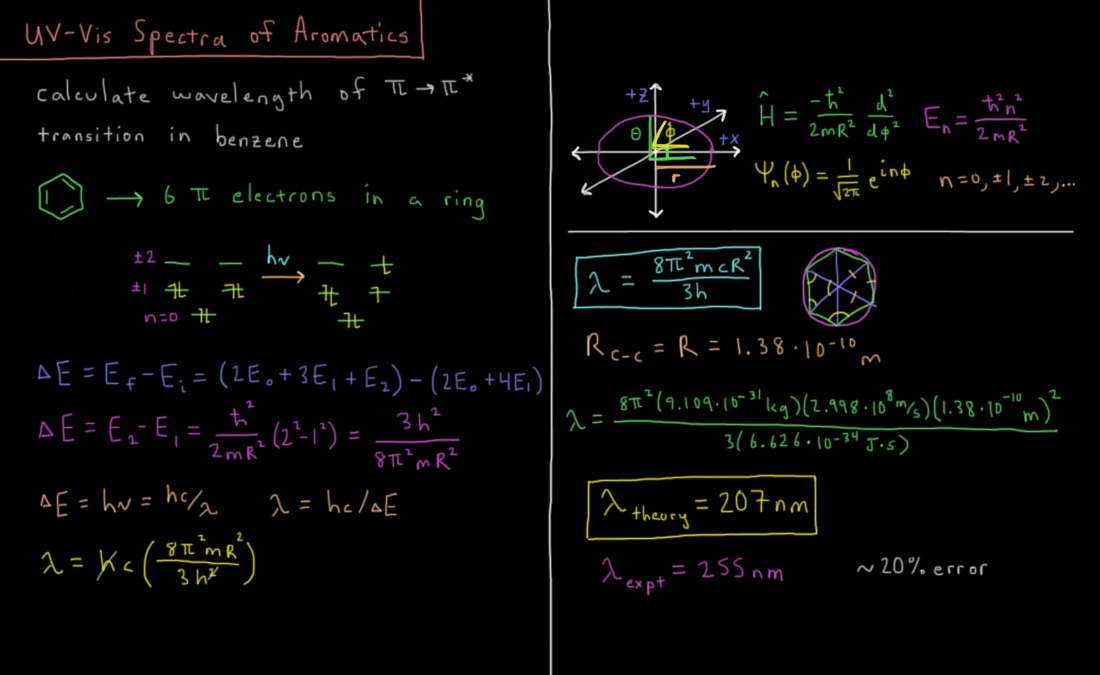 UV-Vis Spectra of Aromatics
calculate wavelength of π → π*
transition in benzene
→ 6 π electrons in a ring
±2
hν
±1
n=0
ΔE = E_f - E_i = (2E₀ + 3E₁ + E₂) - (2E₀ + 4E₁)
ΔE = E₂ - E₁ = ħ²/2mR² (2² - 1²) = 3h²/8π²mR²
ΔE = hν = hc/λ λ = hc/ΔE
λ = hc (8π²mR²/3h²)
+z
+y
θ
φ
+x
r
Ĥ = -ħ²/2mR² d²/dφ² E_n = ħ²n²/2mR²
Ψ_n(φ) = 1/√2π e^inφ n=0, ±1, ±2,...
λ = 8π²mcR²/3h
R_C-C = R = 1.38·10⁻¹⁰ m
λ = 8π²(9.109·10⁻³¹ kg)(2.998·10⁸ m/s)(1.38·10⁻¹⁰ m)²/3(6.626·10⁻³⁴ J·s)
λ_theory = 207 nm
λ_expt = 255 nm ~20% error